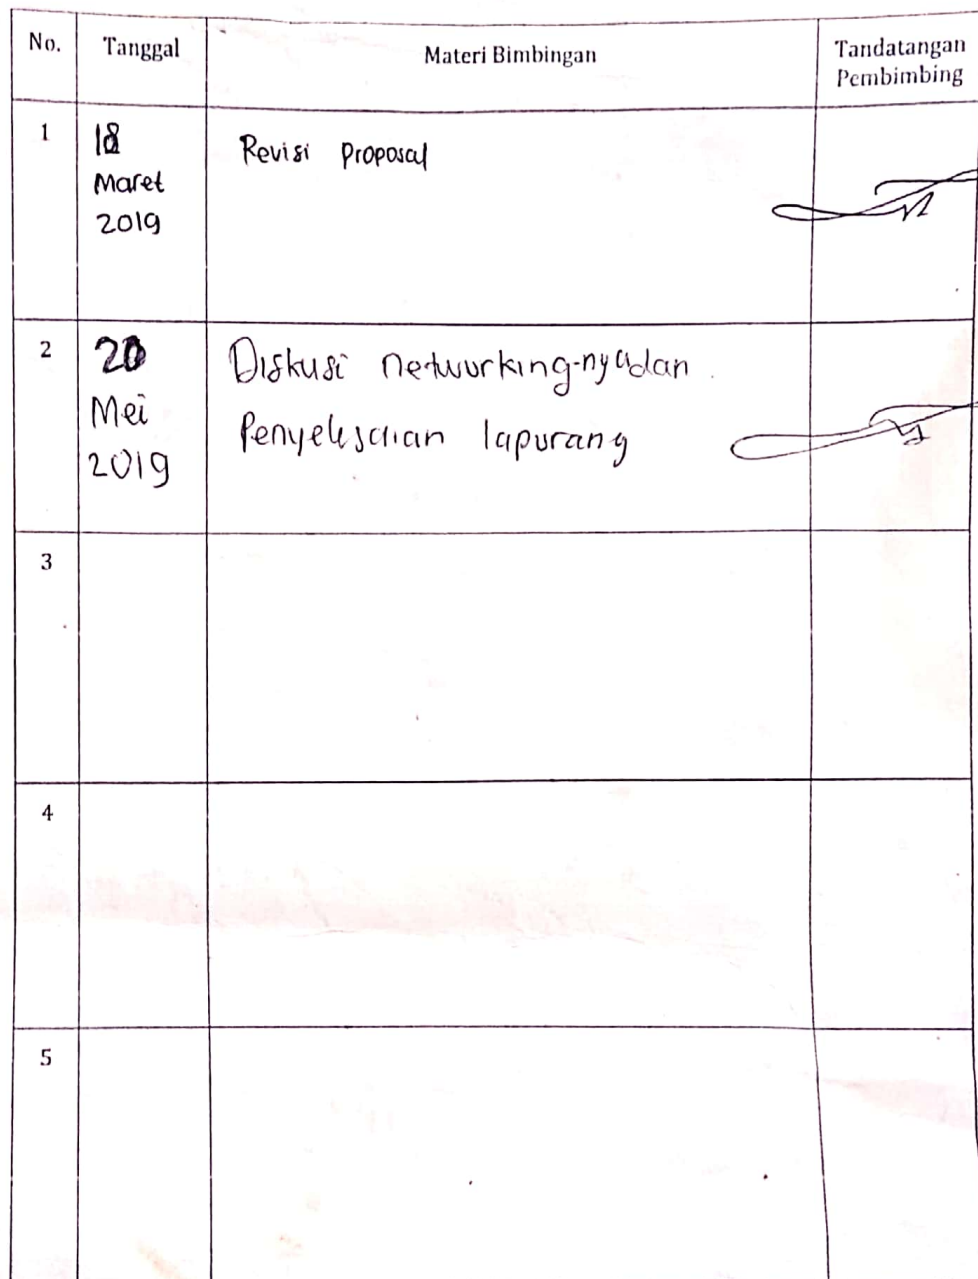 No. Tanggal Materi Bimbingan Tandatangan
Pembimbing
1 18 Revisi Proposal
Maret
2019
2 20 Diskusi networking-nya dan
Mei Penyelesaian lapurang
2019
3
4
5